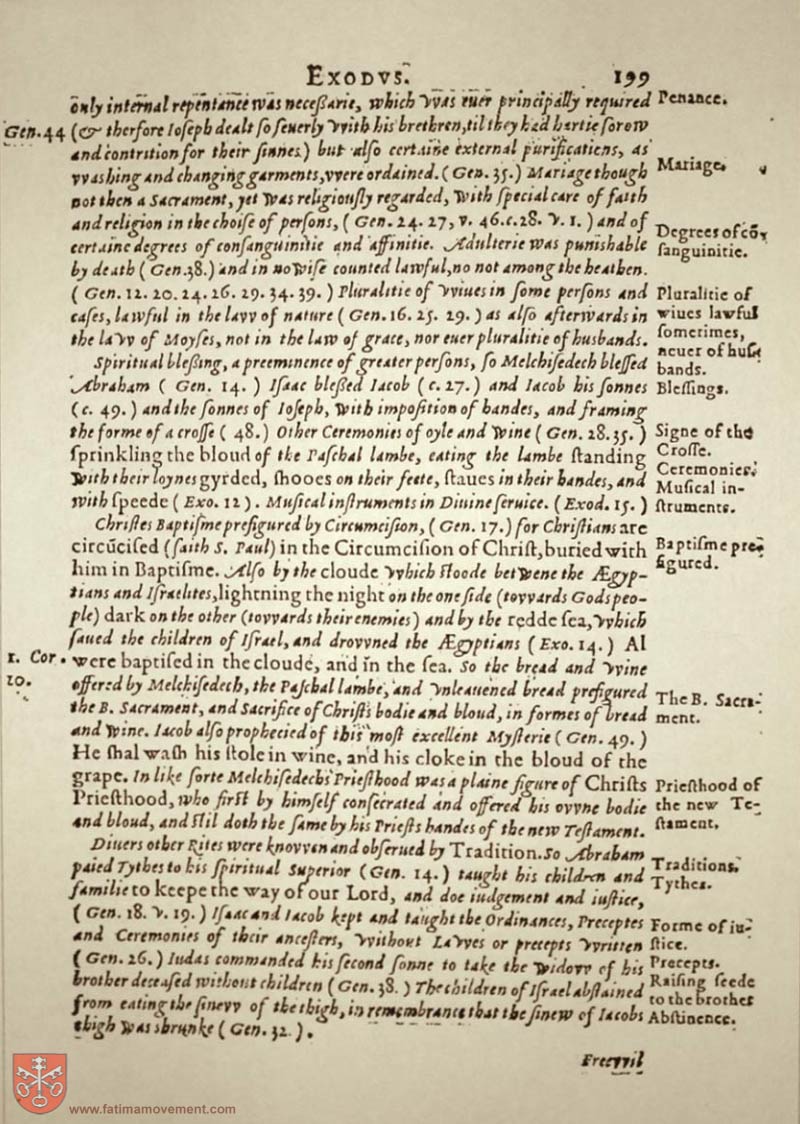 EXODVS. 199
only internal repentance was neceßarie, which vvas euer principally required Penance.
Gen. 44 (& therfore Ioseph dealt so seuerly vvith his brethren, til they had hartie sorow
and contrition for their sinnes) but also certaine external purifications, as
vvashing and changing garments, vvere ordained. (Gen. 35.) Mariage though Mariage.
not then a Sacrament, yet was religiously regarded, with special care of faith
and religion in the choise of persons, (Gen. 24. 27, v. 46. c. 28. v. 1.) and of Degrees of cō-
certaine degrees of consanguinitie and affinitie. Adulterie was punishable sanguinitie.
by death (Gen. 38.) and in no wise counted lawful, no not among the heathen.
(Gen. 12. 20. 24. 26. 29. 34. 39.) Pluralitie of vviues in some persons and Pluralitie of
cases, lawful in the lavv of nature (Gen. 16. 25. 29.) as also afterwards in wiues lawful
the lavv of Moyses, not in the law of grace, nor euer pluralitie of husbands. somtimes,
neuer of husbands.
Spiritual bleßing, a preeminence of greater persons, so Melchisedech blessed
Abraham (Gen. 14.) Isaac bleßed Iacob (c. 27.) and Iacob his sonnes Blessings.
(c. 49.) and the sonnes of Ioseph, with imposition of handes, and framing
the forme of a crosse (48.) Other Ceremonies of oyle and wine (Gen. 28. 35.) Signe of the
sprinkling the bloud of the Paschal lambe, eating the lambe standing Crosse.
With their loynes gyrded, shooes on their feete, staues in their handes, and Ceremonies.
with speede (Exo. 12). Musical instruments in Diuine seruice. (Exod. 15.) Musical instruments.
Christes Baptisme prefigured by Circumcision, (Gen. 17.) for Christians are
circūcised (saith S. Paul) in the Circumcision of Christ, buried with Baptisme pre-
him in Baptisme. Also by the cloude vvhich stoode betwene the Ægyp- figured.
tians and Israelites, lightning the night on the one side (tovvards Gods peo-
ple) dark on the other (tovvards their enemies) and by the redde sea, vvhich
saued the children of Israel, and drovvned the Ægyptians (Exo. 14.) Al
1. Cor. were baptised in the cloude, and in the sea. So the bread and vvine
10. offered by Melchisedech, the Paschal lambe, and vnleauened bread prefigured The B. Sacra-
the B. Sacrament, and Sacrifice of Christs bodie and bloud, in formes of bread ment.
and wine. Iacob also prophecied of this most excellent Mysterie (Gen. 49.)
He shal wash his stole in wine, and his cloke in the bloud of the
grape. In like sorte Melchisedechs Priesthood was a plaine figure of Christs Priesthood of
Priesthood, who first by himself consecrated and offered his ovvne bodie the new Te-
and bloud, and stil doth the same by his Priests handes of the new Testament. stament.
Diuers other Rites were knovven and obserued by Tradition. So Abraham
paied Tythes to his spiritual Superior (Gen. 14.) taught his children and Traditions.
familie to keepe the way of our Lord, and doe iudgement and iustice, Tythes.
(Gen. 18. v. 19.) Isaac and Iacob kept and taught the Ordinances, Preceptes Forme of iu-
and Ceremonies of their ancesters, vvithout Lavves or precepts vvritten stice.
(Gen. 26.) Iudas commanded his second sonne to take the widovv of his Precepts.
brother deceased without children (Gen. 38.) The children of Israel abstained Raising seede
from eating the sinevv of the thigh, in remembrance that the sinew of Iacobs to the brother
thigh was shrunke (Gen. 32.). Abstinence.
Freevvil
www.fatimamovement.com